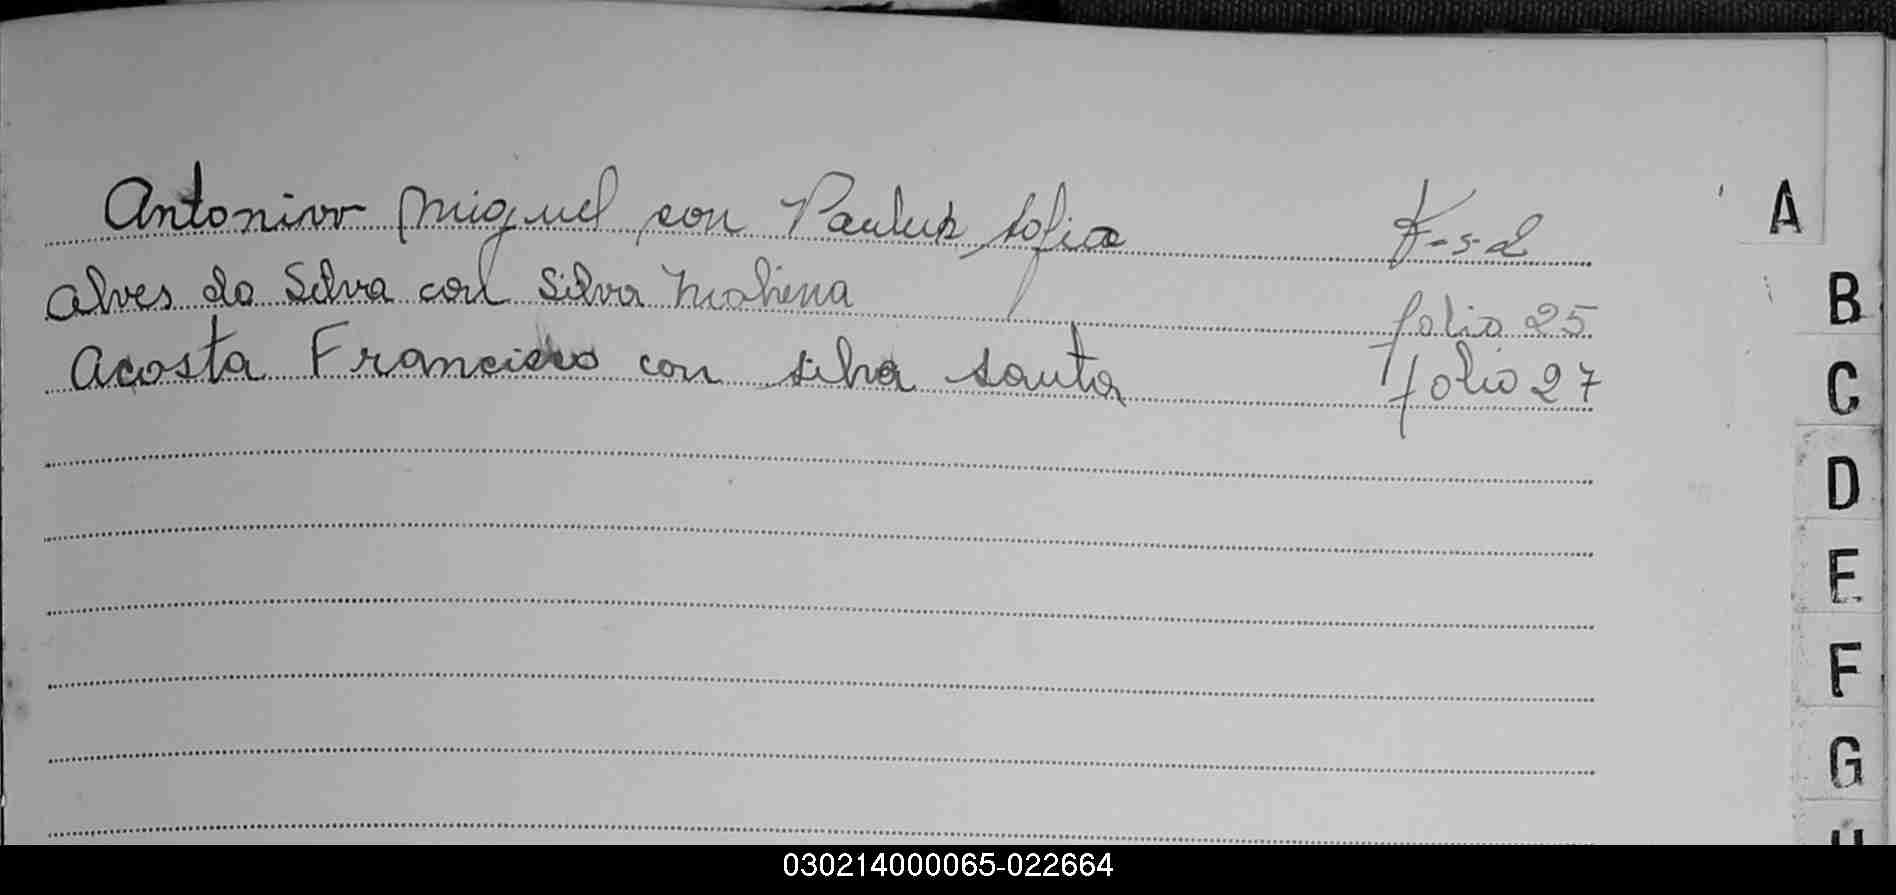 Antoniov Miguel con Pauluk sofia F-s-2
alves da Silva con Silva folio 25
acosta Francisco con silva santa folio 27
A
B
C
D
E
F
G
030214000065-022664